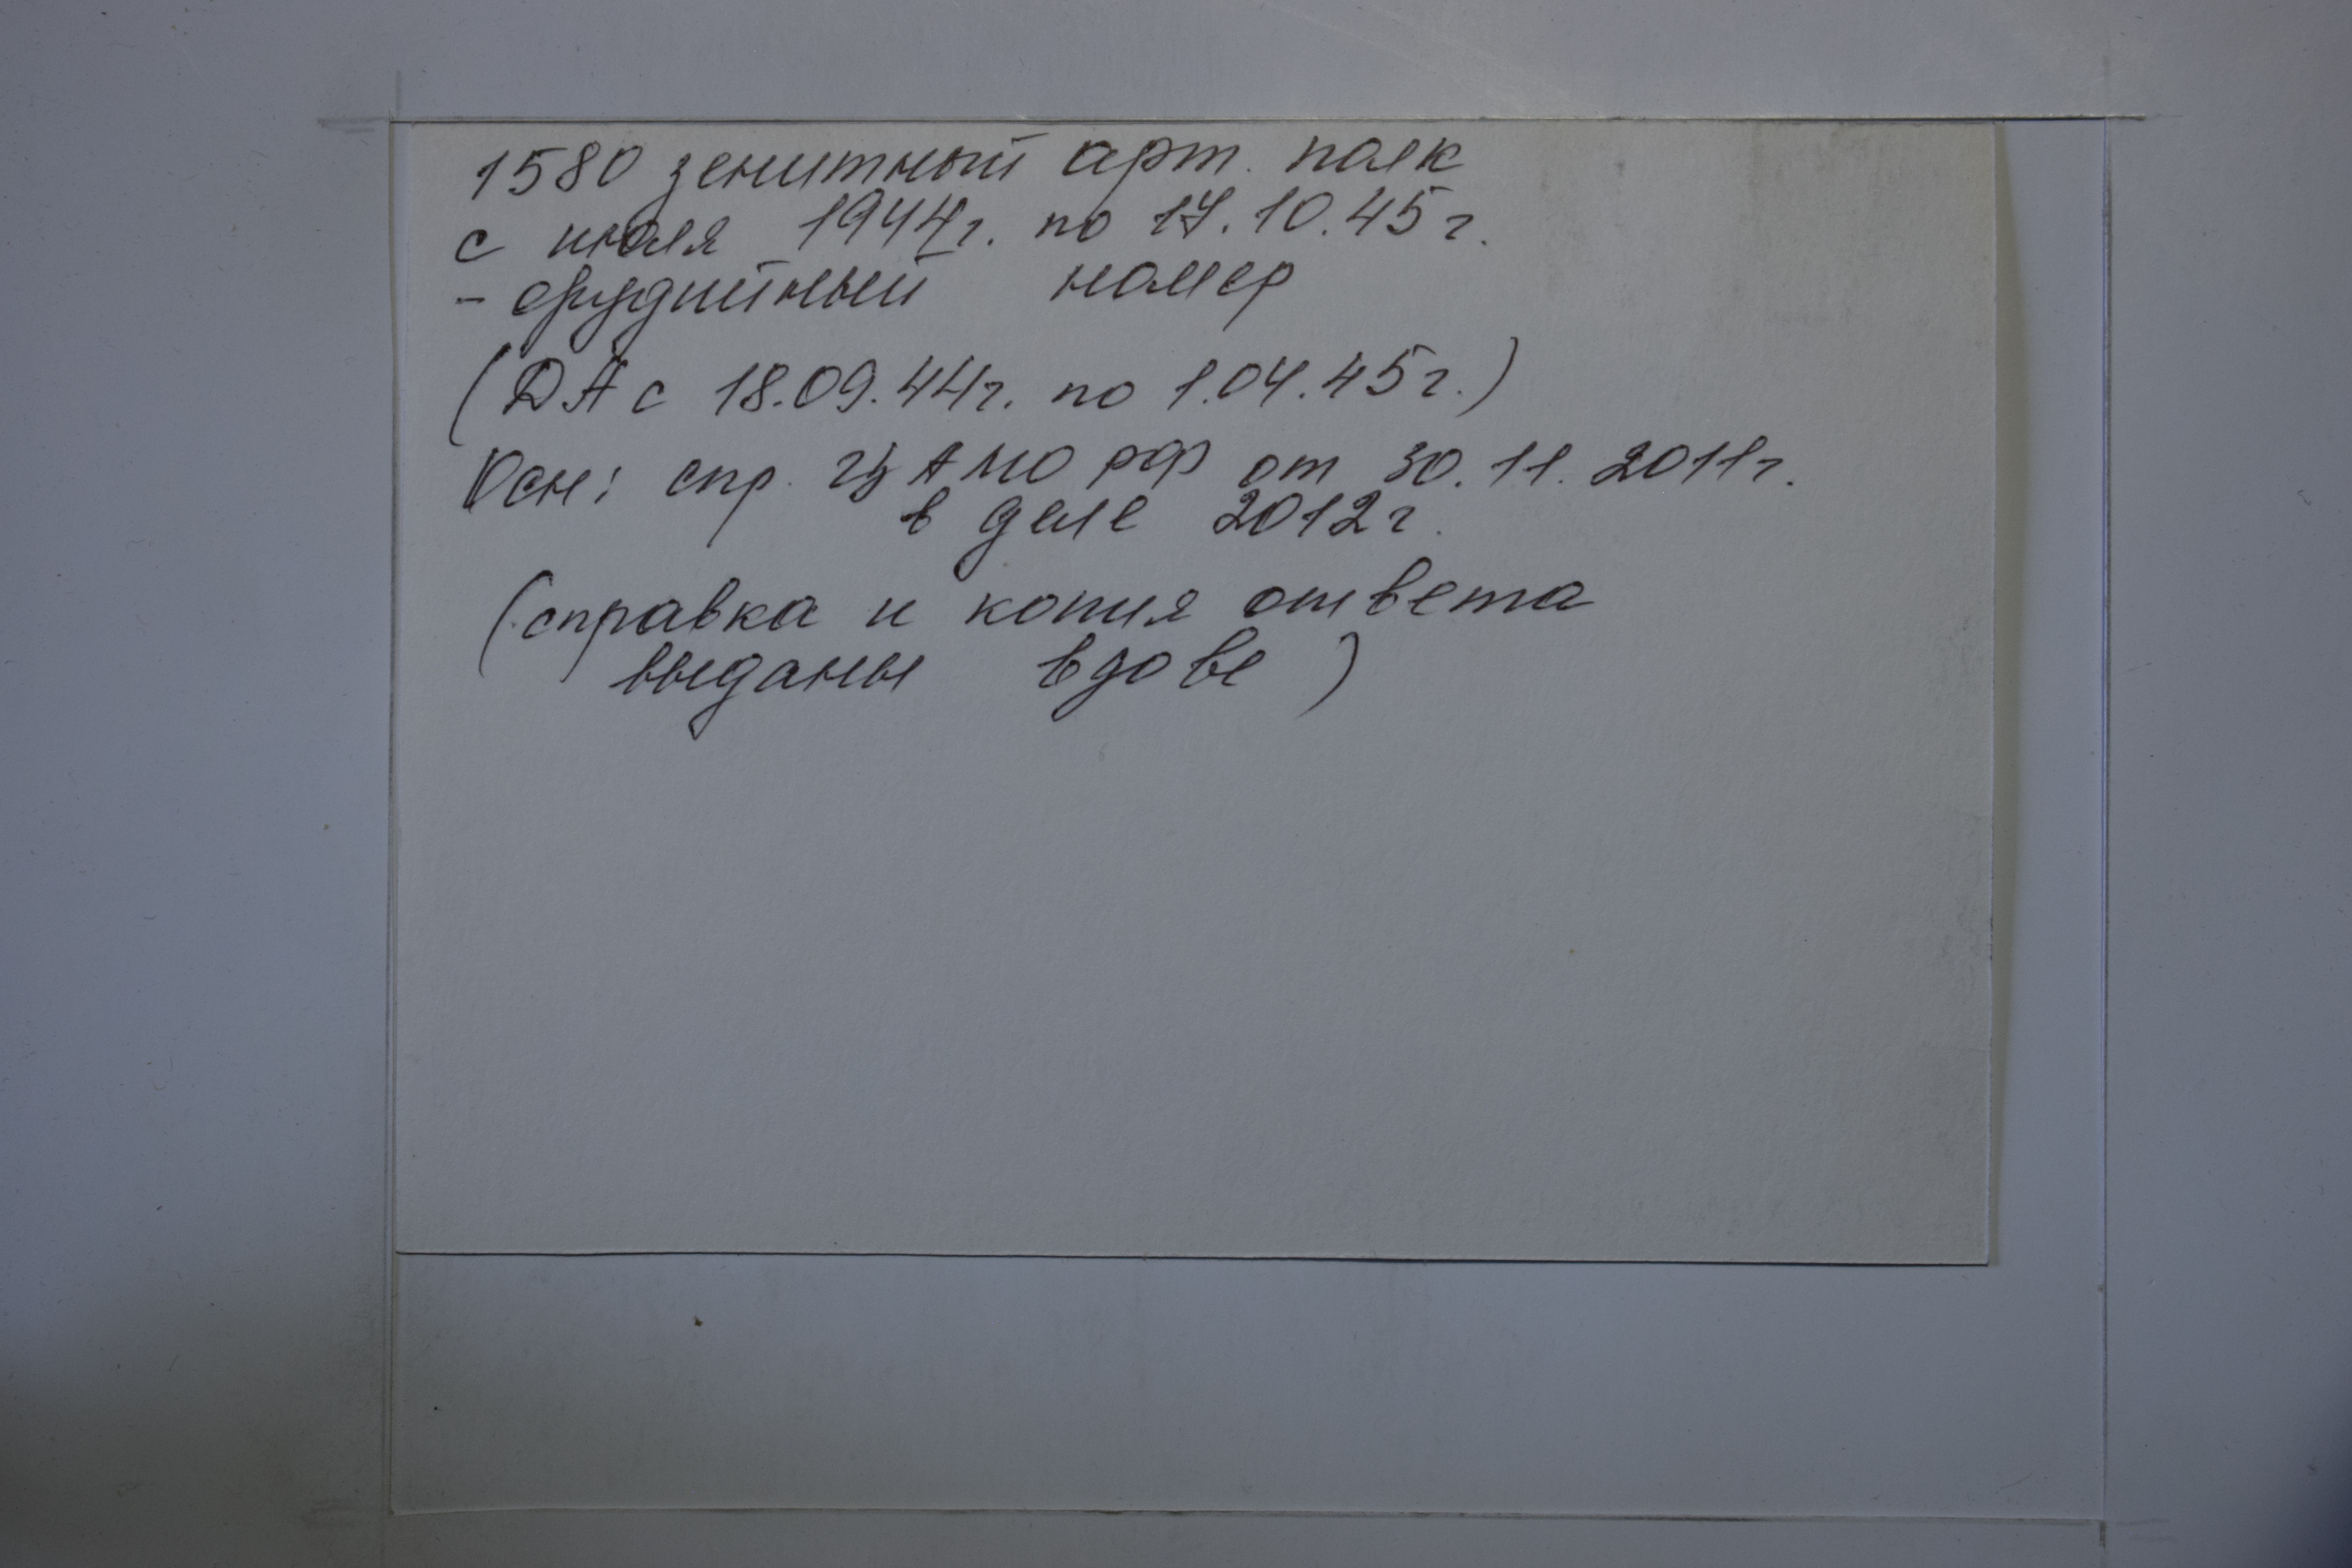 1580 зенитный арт. полк
с июля 1944г. по 17.10.45г.
- орудийный номер
(ДА с 18.09.44г. по 1.04.45г.)
Осн: спр. ЦАМО РФ от 30.11.2011г.
в деле 2012г.
(справка и копия ответа
выданы вдове)